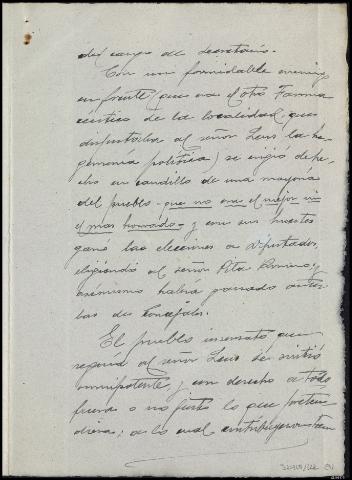 del cargo de secretario.
Con un formidable enemigo
enfrente (que era el otro Farma
céutico de la localidad, que
disputaba al señor Leus la he-
gemonía política) se erigió de he-
cho en caudillo de una mayoría
del pueblo - que no era el mejor ni
el mas honrado - y con sus huestes
ganó las elecciones a diputados,
eligiendo al señor Pita Romero, y
asimismo había ganado antes
las de Concejales.
El pueblo insensato que
seguía al señor Leus se sintió
omnipotente y con derecho a todo
fuera o no justo lo que preten
diera; a lo cual contribuyeron